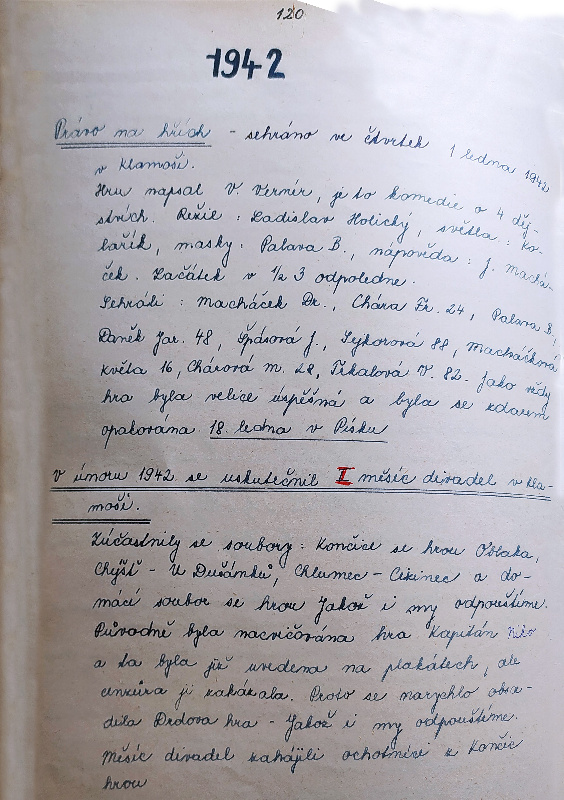 120
1942
Právo na hřích - sehráno ve čtvrtek 1 ledna 1942
v Klamoši.
Hru napsal V. Vernér, je to komedie o 4 děj-
stvích. Režie : Ladislav Holický, světla : Ko-
lařík, masky : Palava B., nápověda : J. Machá-
ček. Začátek v 1/2 3 odpoledne.
Sehráli : Macháček Dr., Chára Fr. 24, Palava B.,
Daněk Jar. 48, Špásová J., Sýkorová 88, Macháčková
Květa 16, Chárová M. 28, Tkalová V. 82. Jako vždy
hra byla velice úspěšná a byla se zdarem
opakována 18. ledna v Písku
V únoru 1942 se uskutečnil I měsíc divadel v Kla-
moši.
Zúčastnily se soubory : Končice se hrou Oblaka,
Chýšť - U Dušánků, Chlumec - Cikinec a do-
mácí soubor se hrou Jakož i my odpouštíme.
Původně byla nacvičována hra Kapitán
a ta byla již uvedena na plakátech, ale
cenzúra ji zakázala. Proto se narychlo obsa-
dila Drdova hra - Jakož i my odpouštíme.
Měsíc divadel zahájili ochotníci z Končic
hrou